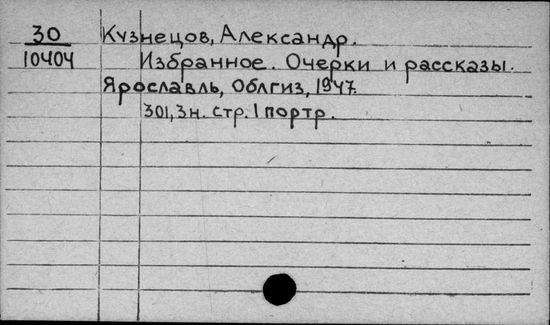 30 Кузнецов, Александр.
10404 Избранное. Очерки и рассказы.
Ярославль, Облгиз, 1947.
301, 3 н. стр. 1 портр.